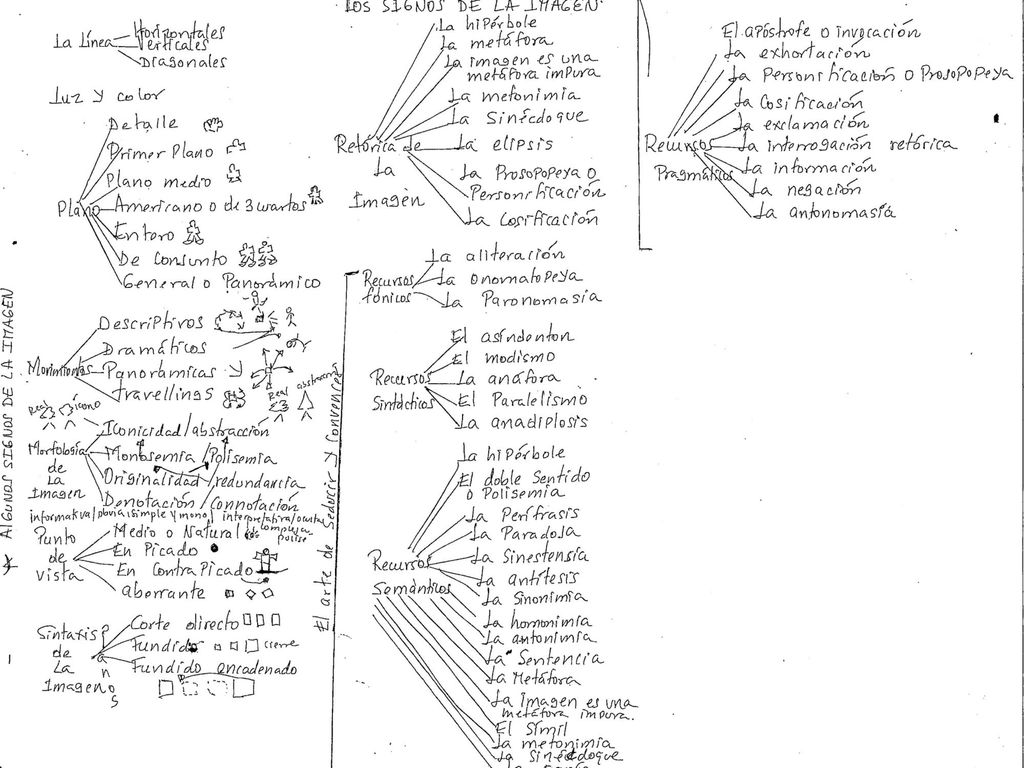 * ALGUNOS SIGNOS DE LA IMAGEN
La Línea
Horizontales
Verticales
Diagonales
Luz y color
Plano
Detalle
Primer Plano
Plano medio
Americano o de 3 cuartos
Entero
De Conjunto
General o Panorámico
Movimientos
Descriptivos
Dramáticos
Panorámicas
travellings
Real
ícono
Real
abstracción
Morfología
de
La
Imagen
Iconicidad/abstracción
Monosemia/Polisemia
Originalidad/redundancia
Denotación/Connotación
informativa/obvia/simple y mono
interpretativa/oculta
compleja
polise
Punto
de
vista
Medio o Natural
En Picado
En ContraPicado
aborrante
Sintaxis
de
La
Imagen
Planos
Corte directo
Fundido
cierre
Fundido encadenado
El arte de Seducir y Convencer
LOS SIGNOS DE LA IMAGEN
Retórica de
La
Imagen
La hipérbole
La metáfora
La imagen es una
metáfora impura
La metonimia
La Sinécdoque
La elipsis
La Prosopopeya o
Personificación
La Cosificación
Recursos
fónicos
La aliteración
La onomatopeya
La Paronomasia
Recursos
Sintácticos
El asíndenton
El modismo
La anáfora
El Paralelismo
La anadiplosis
Recursos
Semánticos
La hipérbole
El doble Sentido
o Polisemia
La Perífrasis
La Paradoja
La Sinestensia
La antítesis
La Sinonimia
La homonimia
La antonimia
La Sentencia
La Metáfora
La Imagen es una
metáfora impura.
El Símil
La metonimia
La Sinécdoque
Recursos
Pragmáticos
El apóstrofe o invocación
La exhortación
La Personificación o Prosopopeya
La Cosificación
La exclamación
La interrogación retórica
La información
La negación
La antonomasia